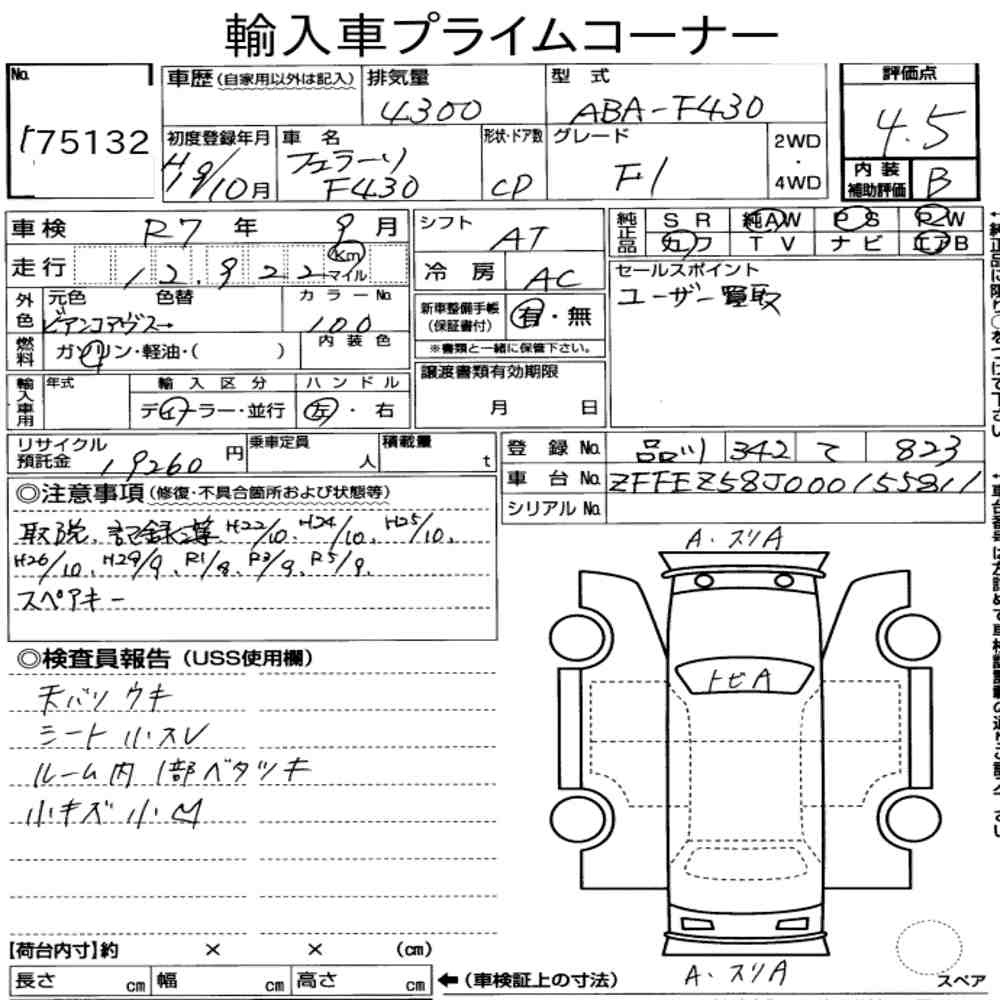 輸入車プライムコーナー
No. 175132
車歴(自家用以外は記入) 排気量 4300 型式 ABA-F430 評価点 4.5
初度登録年月 H19/10月 車名 フェラーリ F430 形状・ドア数 CP グレード F1 2WD・4WD 内装補助評価 B
車検 R7年 9月 シフト AT 純正品 SR 純AW PS PW
走行 12,922 Km マイル 冷房 AC カワ TV ナビ エアB
外色 元色 色替 カラーNo. ビアンコアヴス→ 100
新車整備手帳(保証書付) 有・無
※書類と一緒に保管下さい。
セールスポイント
ユーザー買取
燃料 ガソリン・軽油・( ) 内装色
譲渡書類有効期限 月 日
輸入車用 年式 輸入区分 ハンドル
ディーラー・並行 左・右
リサイクル預託金 19260円 乗車定員 人 積載量 t
登録No. 品川 342 て 823
車台No. ZFFEZ58J000155811
シリアルNo.
◎注意事項(修復・不具合箇所および状態等)
取説、記録簿 H22/10、H24/10、H25/10、
H26/10、H29/9、R1/8、R3/9、R5/9、
スペアキー
◎検査員報告(USS使用欄)
天バリウキ
シート小スレ
ルーム内1部ベタツキ
小キズ小凹
A・スリA
トビA
A・スリA
スペア
【荷台内寸】約 × × (cm)
長さ cm 幅 cm 高さ cm ←(車検証上の寸法)